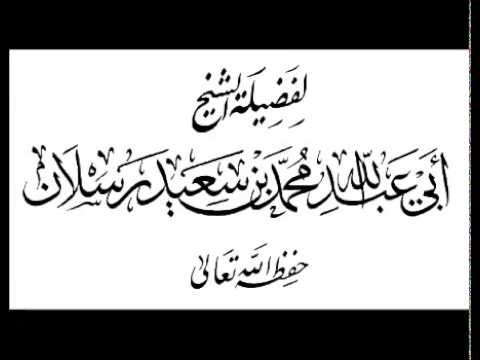 لِفَضِيلَةِ الشَّيْخِ
أَبِي عَبْدِ اللهِ مُحَمَّدِ بْنِ سَعِيد رَسْلَان
حَفِظَهُ اللهُ تَعَالَى